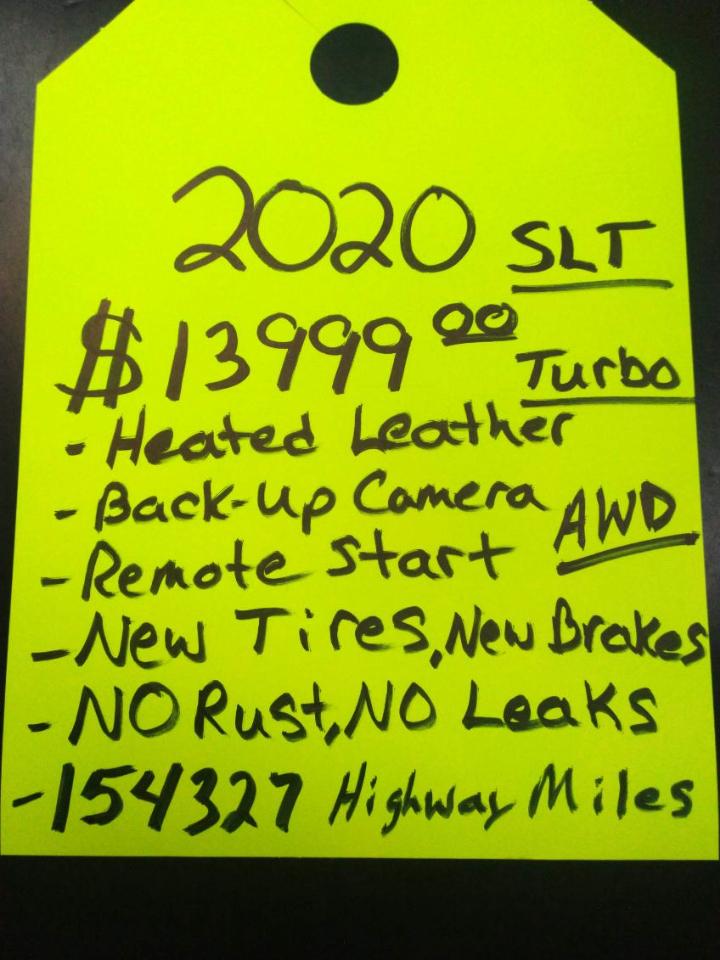 2020 SLT
$13999 00
Turbo
- Heated Leather
- Back-Up Camera
AWD
- Remote Start
- New Tires, New Brakes
- NO Rust, NO Leaks
- 154327 Highway Miles